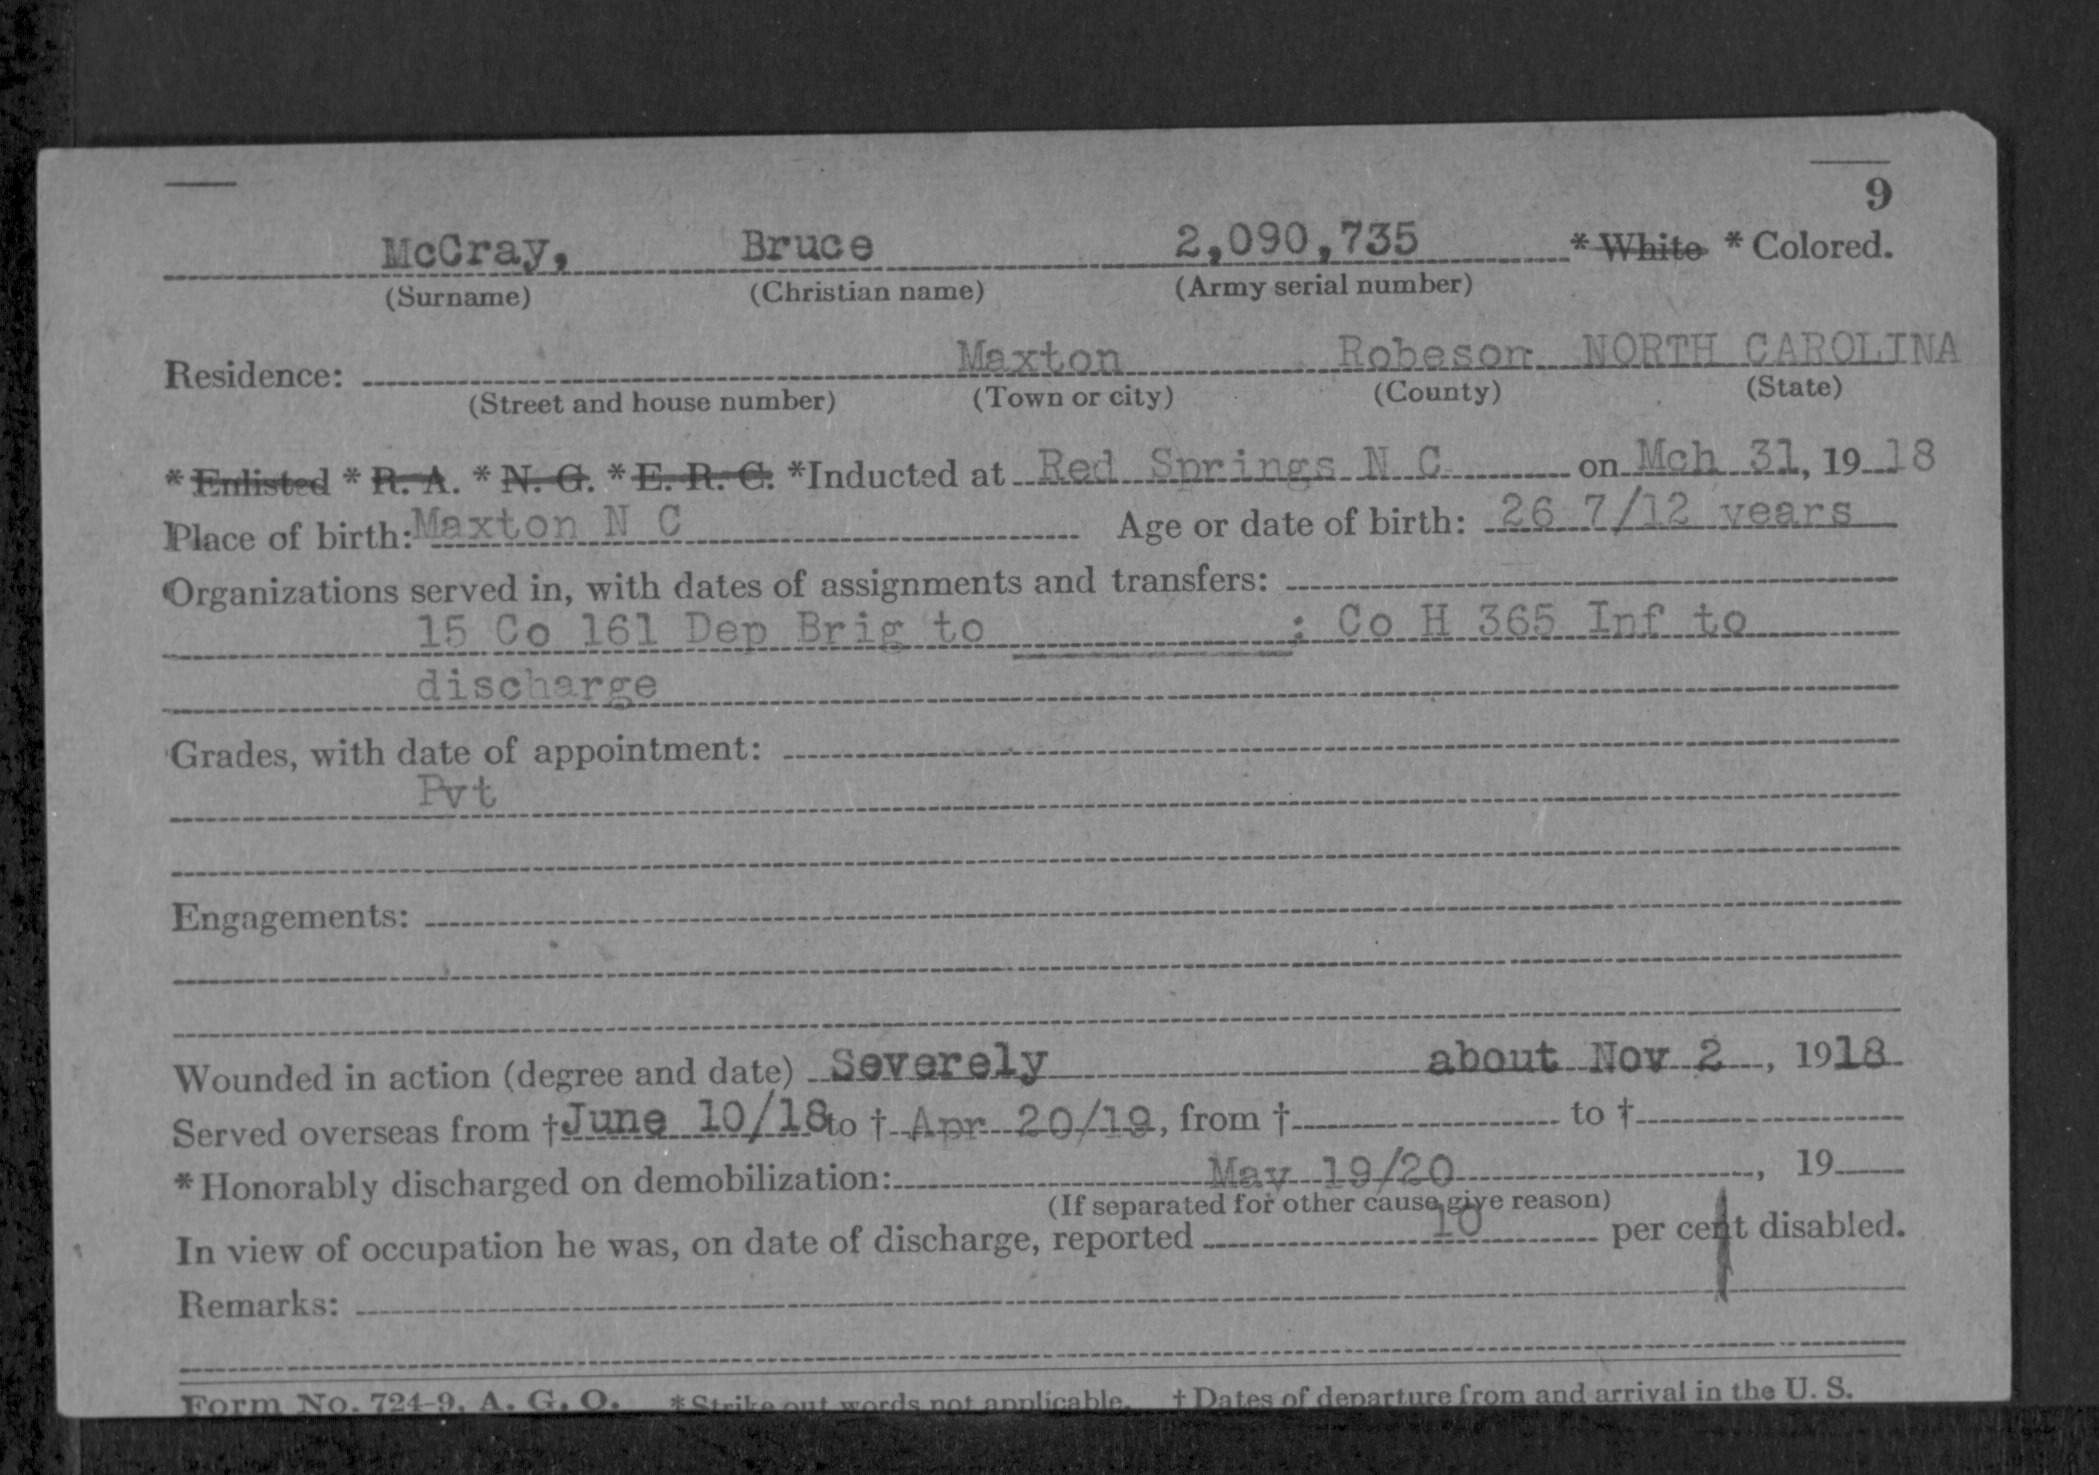 9
McCray, Bruce 2,090,735 * White * Colored.
(Surname) (Christian name) (Army serial number)
Residence: Maxton Robeson NORTH CAROLINA
(Street and house number) (Town or city) (County) (State)
* Enlisted * R. A. * N. G. * E. R. C. *Inducted at Red Springs N C on Mch 31, 19 18
Place of birth: Maxton N C Age or date of birth: 26 7/12 years
Organizations served in, with dates of assignments and transfers:
15 Co 161 Dep Brig to ; Co H 365 Inf to
discharge
Grades, with date of appointment:
Pvt
Engagements:
Wounded in action (degree and date) Severely about Nov 2, 1918
Served overseas from † June 10/18 to † Apr 20/19, from † to †
* Honorably discharged on demobilization: May 19/20, 19
(If separated for other cause give reason)
In view of occupation he was, on date of discharge, reported 10 per cent disabled.
Remarks:
Form No. 724-9, A. G. O. * Strike out words not applicable. † Dates of departure from and arrival in the U. S.